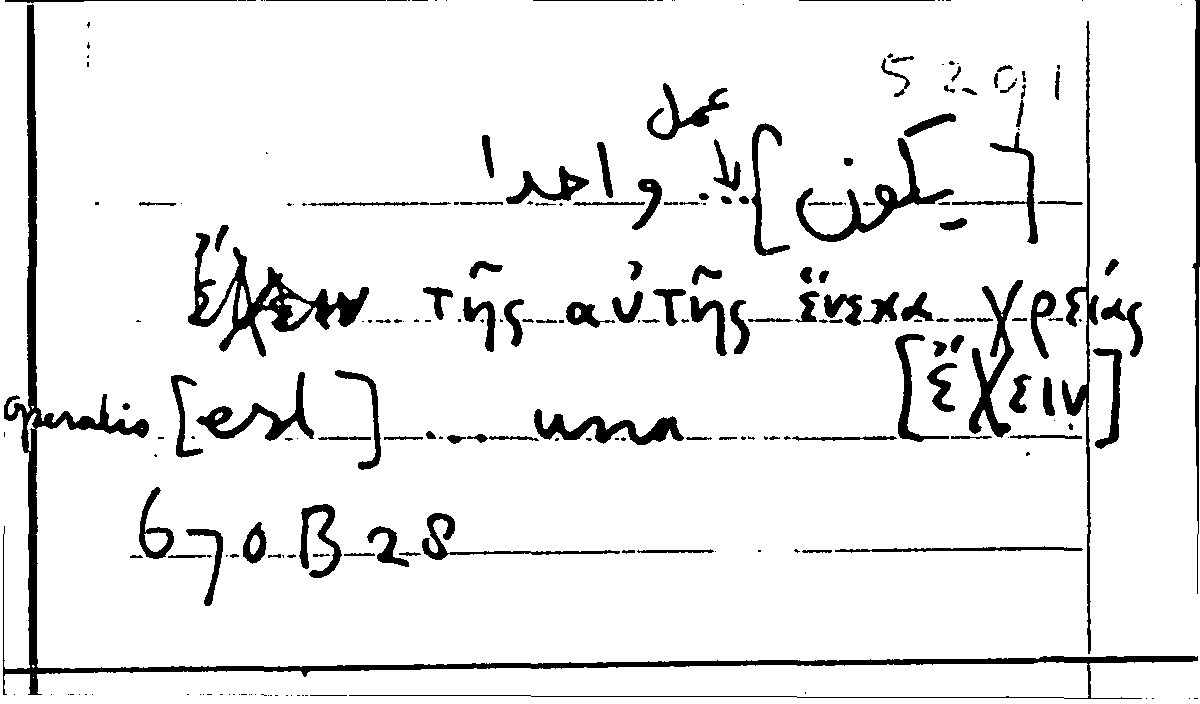 5291
عمل
[يكون] ... واحدا
τῆς αὐτῆς ἕνεκα χρείας
[ἔχειν]
operatio [est] ... una
670 B 28